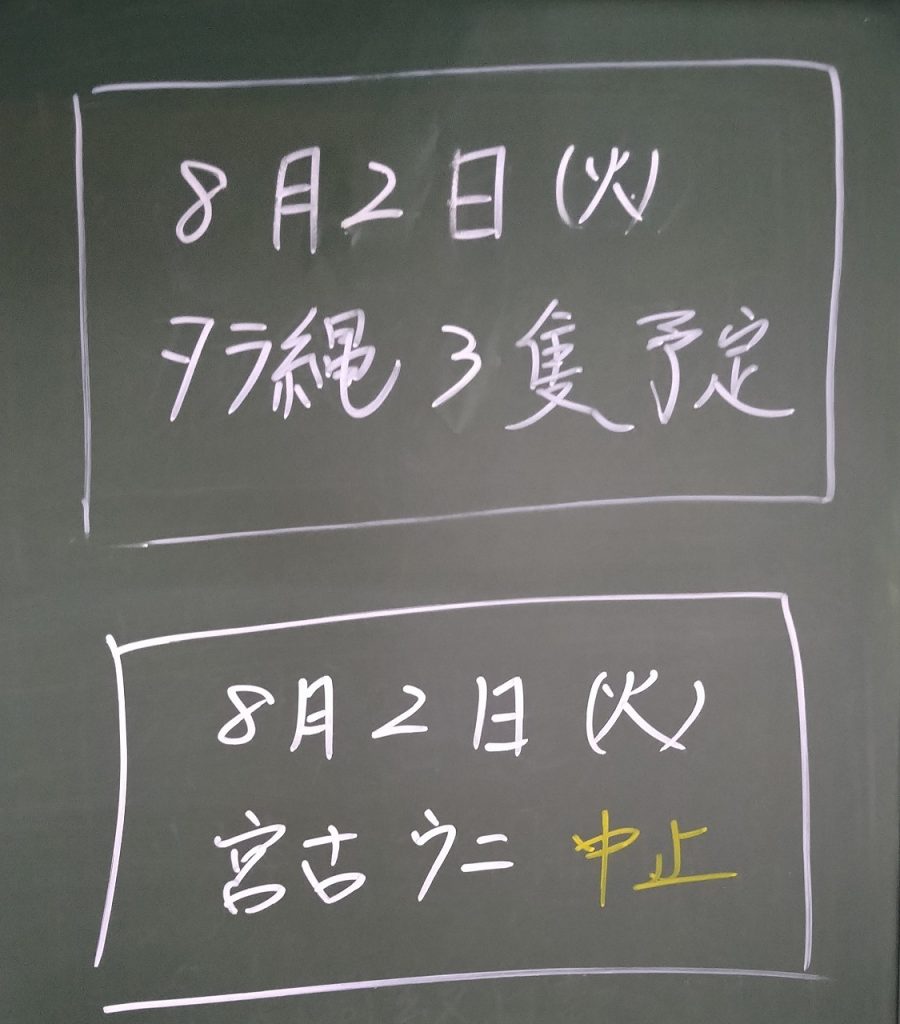 8月2日(火)
タラ縄 3隻予定
8月2日(火)
宮古 ウニ 中止